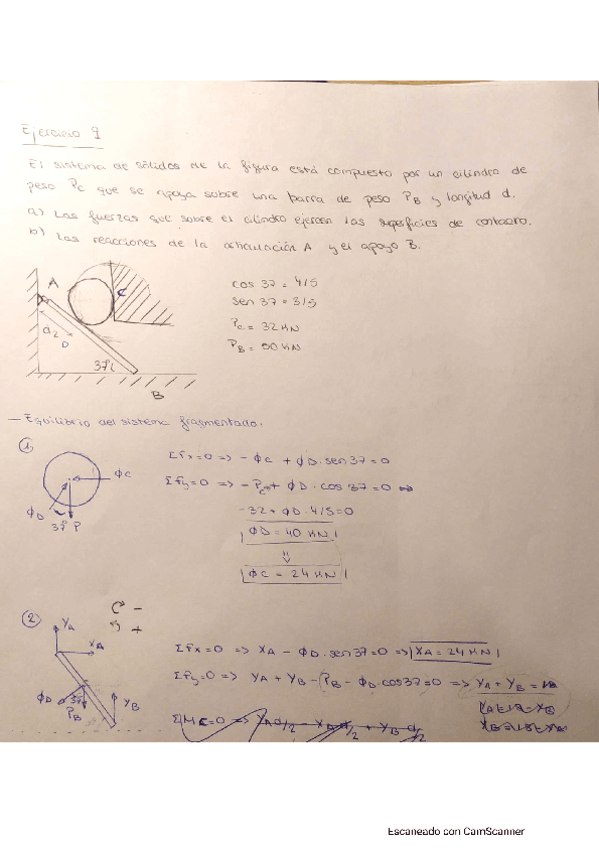 Ejercicio 9
El sistema de sólidos de la figura está compuesto por un cilindro de
peso Pc que se apoya sobre una barra de peso PB y longitud d.
a) Las fuerzas que sobre el cilindro ejercen las superficies de contacto.
b) Las reacciones de la articulación A y el apoyo B.
A
C
D
37º
B
cos 37 = 4/5
sen 37 = 3/5
Pc = 32 KN
PB =
- Equilibrio del sistema fragmentado.
①
ϕC
ϕD
37º P
Σfx=0 => - ϕC + ϕD·sen37=0
Σfy=0 => -Pc+ ϕD·cos37=0 =>
-32+ ϕD·4/5=0
ϕD=40 KN
⇓
ϕC = 24 KN
②
YA
XA
ϕD
37
PB
YB
-
+
Σfx=0 => XA - ϕD·sen37=0 => XA=24 KN
Σfy=0 => YA + YB - PB - ϕD·cos37=0 => YA+YB =
Escaneado con CamScanner